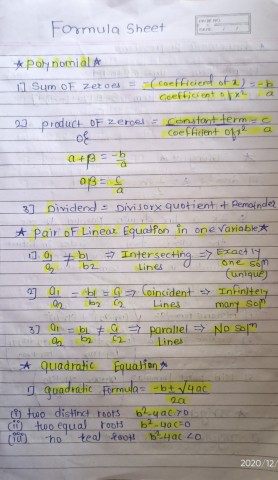 Formula Sheet
* Polynomial *
1] Sum of zeroes = -(coefficient of x) / coefficient of x² = -b/a
2] product of zeroes = constant term / coefficient of x² = c/a
α+β = -b/a
αβ = c/a
3] Dividend = Divisor x quotient + Remainder
* Pair of Linear Equation in one variable *
1] a1/a2 ≠ b1/b2 ⇒ Intersecting Lines ⇒ Exactly one sol^n (unique)
2] a1/a2 = b1/b2 = c1/c2 ⇒ Coincident Lines ⇒ Infinitely many sol^n
3] a1/a2 = b1/b2 ≠ c1/c2 ⇒ parallel Lines ⇒ No sol^n
* Quadratic Equation *
1] quadratic formula = -b ± √4ac / 2a
(i) two distinct roots b²-4ac>0
(ii) two equal roots b²-4ac=0
(iii) no real roots b²-4ac<0
2020/12/